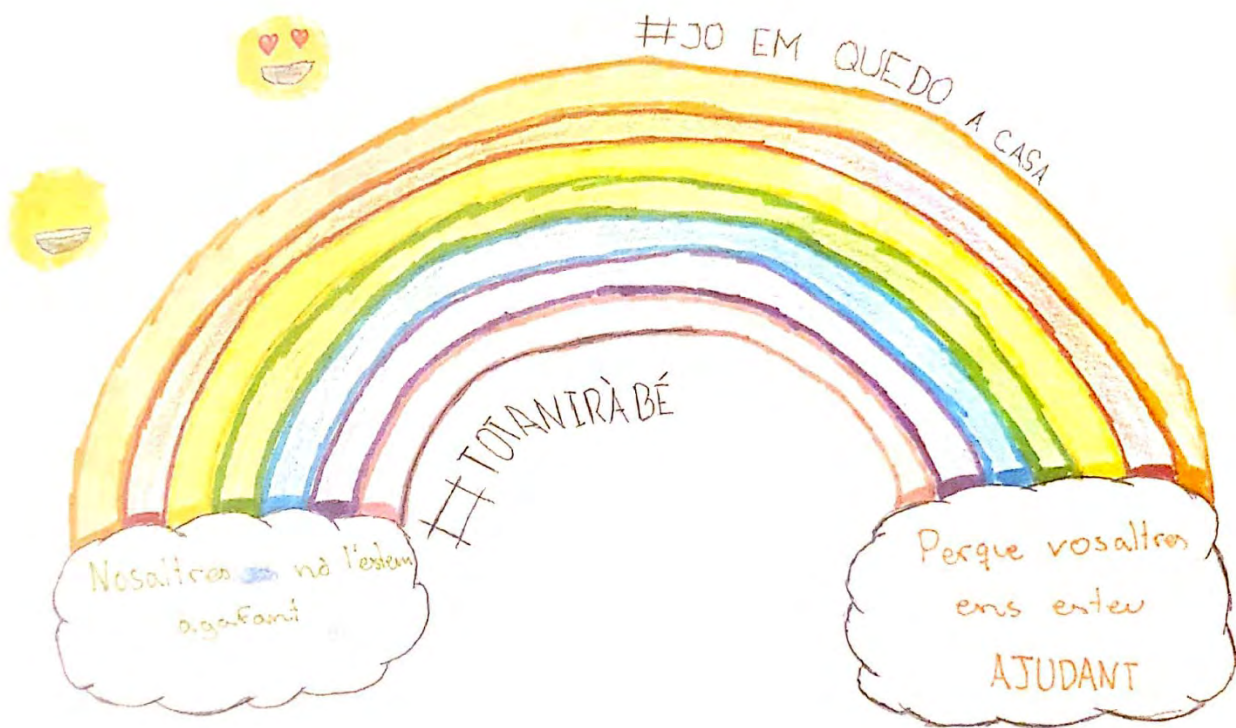 #JO EM QUEDO A CASA
#TOTANIRÀBÉ
Nosaltres no l'estem
agafant
Perque vosaltres
ens esteu
AJUDANT